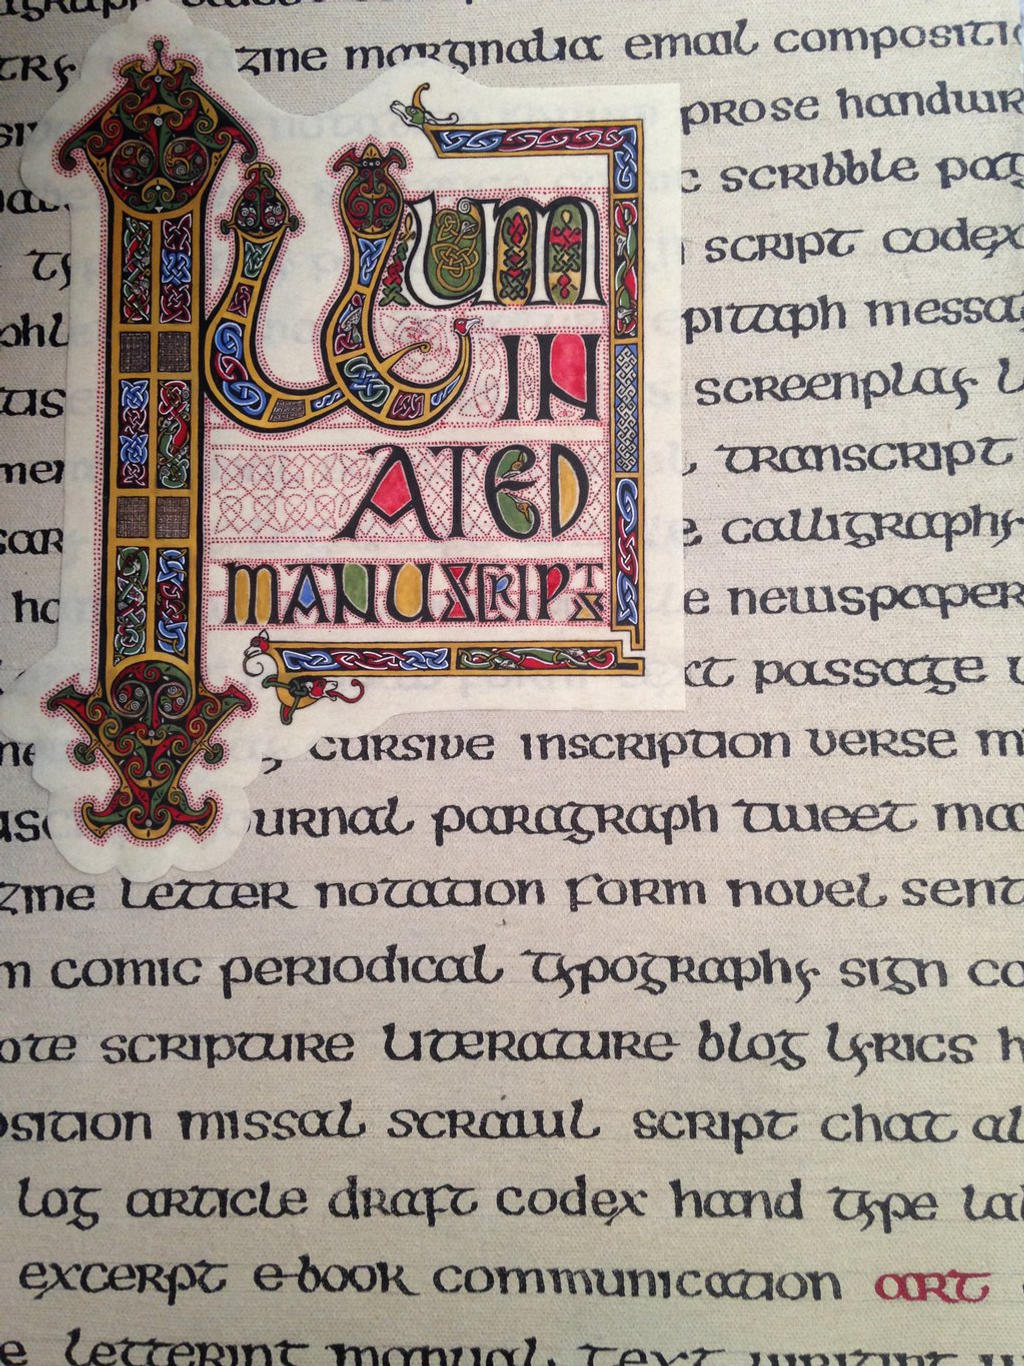 ILLUM
IN
ATED
MANUSCRIPTS
zine marginalia email compositi
prose handwr
scribble pag
script codex
pitaph messa
screenplay
transcript
calligraphy
newspaper
passage
cursive inscription verse m
urnal paragraph tweet ma
zine letter notation form novel sent
m comic periodical typography sign co
ote scripture literature blog lyrics h
osition missal scrawl script chat al
log article draft codex hand type la
excerpt e-book communication art
e lettering manual text writing